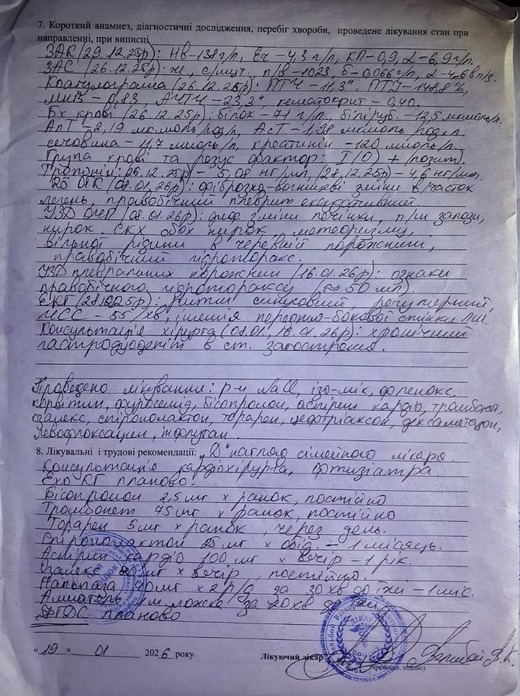 7. Короткий анамнез, діагностичні дослідження, перебіг хвороби, проведене лікування стан при
направленні, при виписці
ЗАК (29.12.25р): Нв-138г/л, Ер-4,3 г/л, КП-0,9, L-6,9г/л.
ЗАС (26.12.25р): ж, с/мут., п/в-1023, б-0,066г/л, L-4-6 в п/з.
Коагулограма (26.12.25р): ПТЧ-11,3", ПТІ-148,8%,
МНВ-0,83, АЧТЧ-23,2", гематокрит-0,40.
Бх крові (26.12.25р): білок-71 г/л, біліруб.-12,5 мкмоль/л.
АлТ-2,19 мкмоль/год/л, АсТ-1,38 мкмоль/год л.
сечовина-11,7 ммоль/л, креатинін-120 ммоль/л.
Група крові та резус фактор: I(О)+(позит).
Тропонін: 26.12.25р-5,08 нг/мл, (28.12.25р)-4,6 нг/мл.
ОГК (08.01.26р): фіброзно-вогнищеві зміни в/часток
легень, правобічний плеврит ексудативний
УЗД ОЧП (08.01.26р): диф. зміни печінки, п/ш залози,
нирок. СКХ обох нирок, метеоризм,
вільної рідини в черевній порожнині,
правобічний гідроторакс.
УЗД плевральних порожнин (16.01.26р): ознаки
правобічного гідротораксу (≈50 мл)
ЕКГ (28.12.25р): ритм синусовий, регулярний,
ЧСС-55/хв, ішемія передньо-бокової стінки ЛШ.
Консультація хірурга (08.01, 18.01.26р): хронічний
гастродуоденіт в ст. загострення.
Проведено лікування: р-н NaCl, ізо-мік, фленокс,
корвітин, фуросемід, бісопролол, аспірин кардіо, тромбонет,
спіронолактон, торарен, цефтріаксон, дексаметазон,
левофлоксацин,
8. Лікувальні і трудові рекомендації: "Д" нагляд сімейного лікаря
Консультація кардіохірурга, фтизіатра
Ехо КГ планово.
Бісопролол 2,5 мг х ранок, постійно
Тромбонет 75 мг х ранок, постійно
Торарен 5мг х ранок, через день.
Спіронолактон 25 мг х обід - 1 місяць.
Аспірин кардіо 100 мг х вечір - 1 рік.
мг х вечір, постійно.
Нольпаза мг х 2 р/д за 30хв до їжі - 1 міс.
ложка за 20хв до їжі
ФГДС планово
« 19 » 01 2026 року Лікуючий лікар